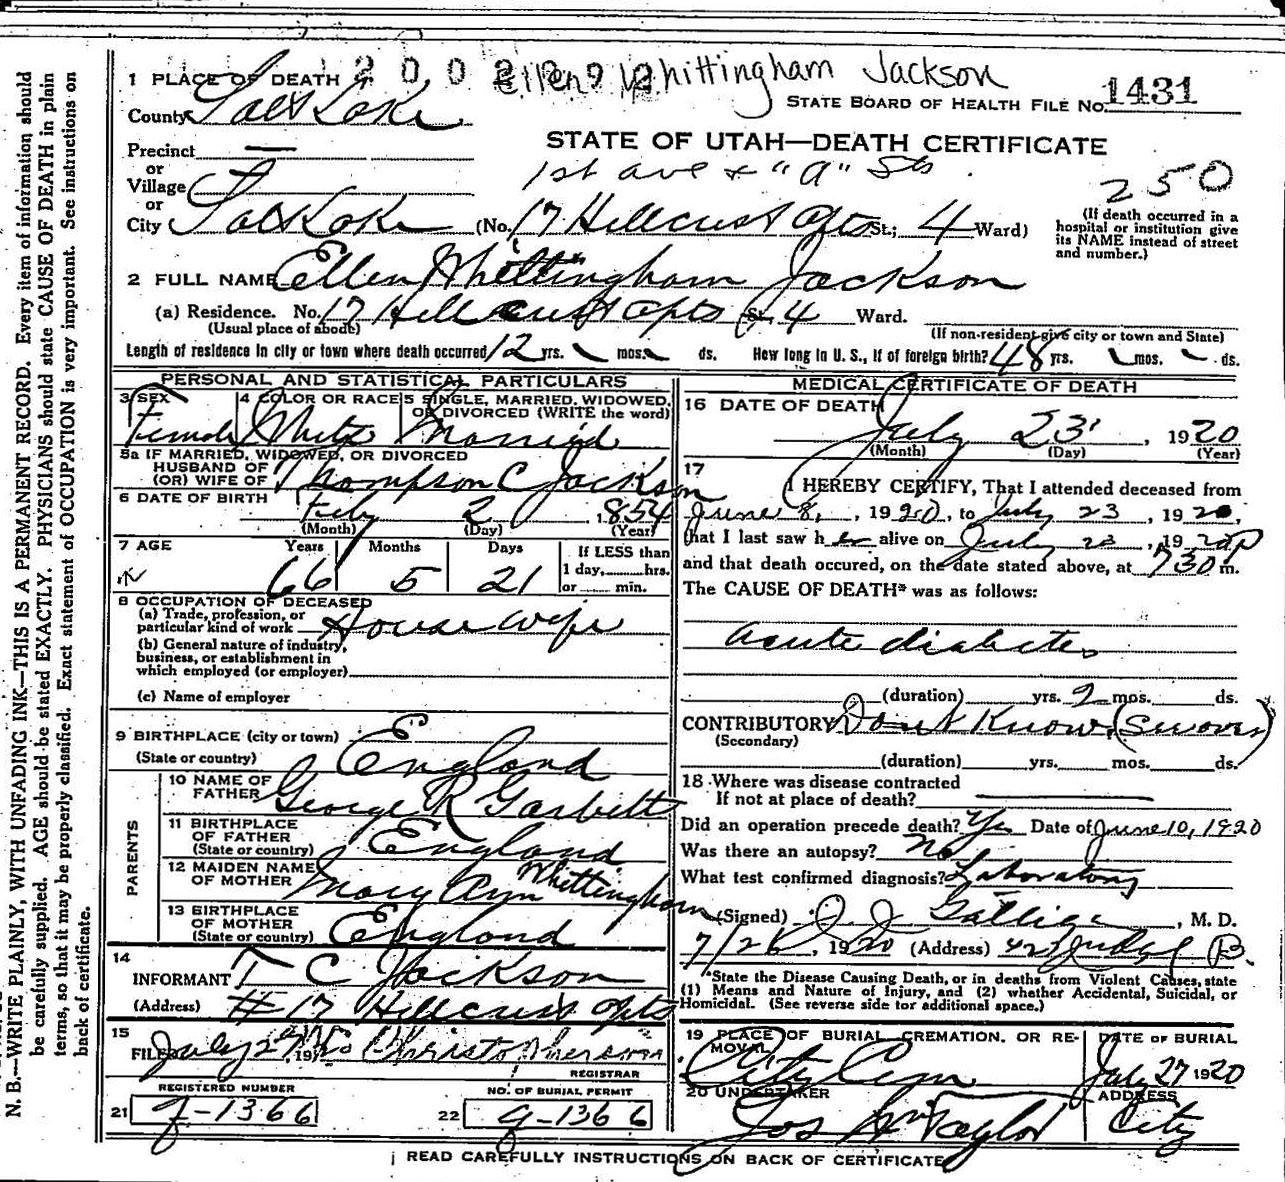 Ellen Whittingham Jackson
1 PLACE OF DEATH
STATE BOARD OF HEALTH FILE No. 1431
County Salt Lake
STATE OF UTAH—DEATH CERTIFICATE
Precinct —
or
Village
or
1st ave & "A" Sts.
250
City Salt Lake (No. 17 Hillcrest Apts St.; 4 Ward)
(If death occurred in a hospital or institution give its NAME instead of street and number.)
2 FULL NAME Ellen Whittingham Jackson
(a) Residence. No. 17 Hillcrest Apts St. 4 Ward.
(Usual place of abode)
(If non-resident give city or town and State)
Length of residence in city or town where death occurred 12 yrs. mos. ds. How long in U. S., if of foreign birth? 48 yrs. mos. ds.
PERSONAL AND STATISTICAL PARTICULARS
3 SEX Female
4 COLOR OR RACE White
5 SINGLE, MARRIED, WIDOWED, OR DIVORCED (WRITE the word) Married
5a IF MARRIED, WIDOWED, OR DIVORCED
HUSBAND OF
(OR) WIFE OF Thompson C Jackson
6 DATE OF BIRTH
Feby 2, 1854
(Month) (Day) (Year)
7 AGE
Years Months Days
66 5 21
If LESS than
1 day, ...... hrs.
or ...... min.
8 OCCUPATION OF DECEASED
(a) Trade, profession, or
particular kind of work House wife
(b) General nature of industry,
business, or establishment in
which employed (or employer)
(c) Name of employer
9 BIRTHPLACE (city or town)
(State or country) England
PARENTS
10 NAME OF
FATHER George R Garbett
11 BIRTHPLACE
OF FATHER
(State or country) England
12 MAIDEN NAME
OF MOTHER Mary Ann Whittingham
13 BIRTHPLACE
OF MOTHER
(State or country) England
14
INFORMANT T C Jackson
(Address) #17 Hillcrest Apts
15
FILED July 27 1920 Christopherson
REGISTRAR
REGISTERED NUMBER
21 g-1366
NO. OF BURIAL PERMIT
22 g-1366
MEDICAL CERTIFICATE OF DEATH
16 DATE OF DEATH
July 23, 1920
(Month) (Day) (Year)
17
I HEREBY CERTIFY, That I attended deceased from
June 8, 1920, to July 23, 1920,
that I last saw her alive on July 23, 1920
and that death occured, on the date stated above, at 730 P m.
The CAUSE OF DEATH* was as follows:
Acute diabetes
(duration) yrs. 2 mos. ds.
CONTRIBUTORY Don't Know.
(Secondary)
(duration) yrs. mos. ds.
18 Where was disease contracted
If not at place of death?
Did an operation precede death? Yes Date of June 10, 1920
Was there an autopsy? No
What test confirmed diagnosis? Laboratory
(Signed) J J Galligan, M. D.
7/26, 1920 (Address) 422 Judge B.
*State the Disease Causing Death, or in deaths from Violent Causes, state
(1) Means and Nature of Injury, and (2) whether Accidental, Suicidal, or
Homicidal. (See reverse side for additional space.)
19 PLACE OF BURIAL, CREMATION, OR REMOVAL
City Cem
DATE OF BURIAL
July 27 1920
20 UNDERTAKER
Jos Wm Taylor
ADDRESS
City
READ CAREFULLY INSTRUCTIONS ON BACK OF CERTIFICATE
N. B.—WRITE PLAINLY, WITH UNFADING INK—THIS IS A PERMANENT RECORD. Every item of information should
be carefully supplied. AGE should be stated EXACTLY. PHYSICIANS should state CAUSE OF DEATH in plain
terms, so that it may be properly classified. Exact statement of OCCUPATION is very important. See instructions on
back of certificate.